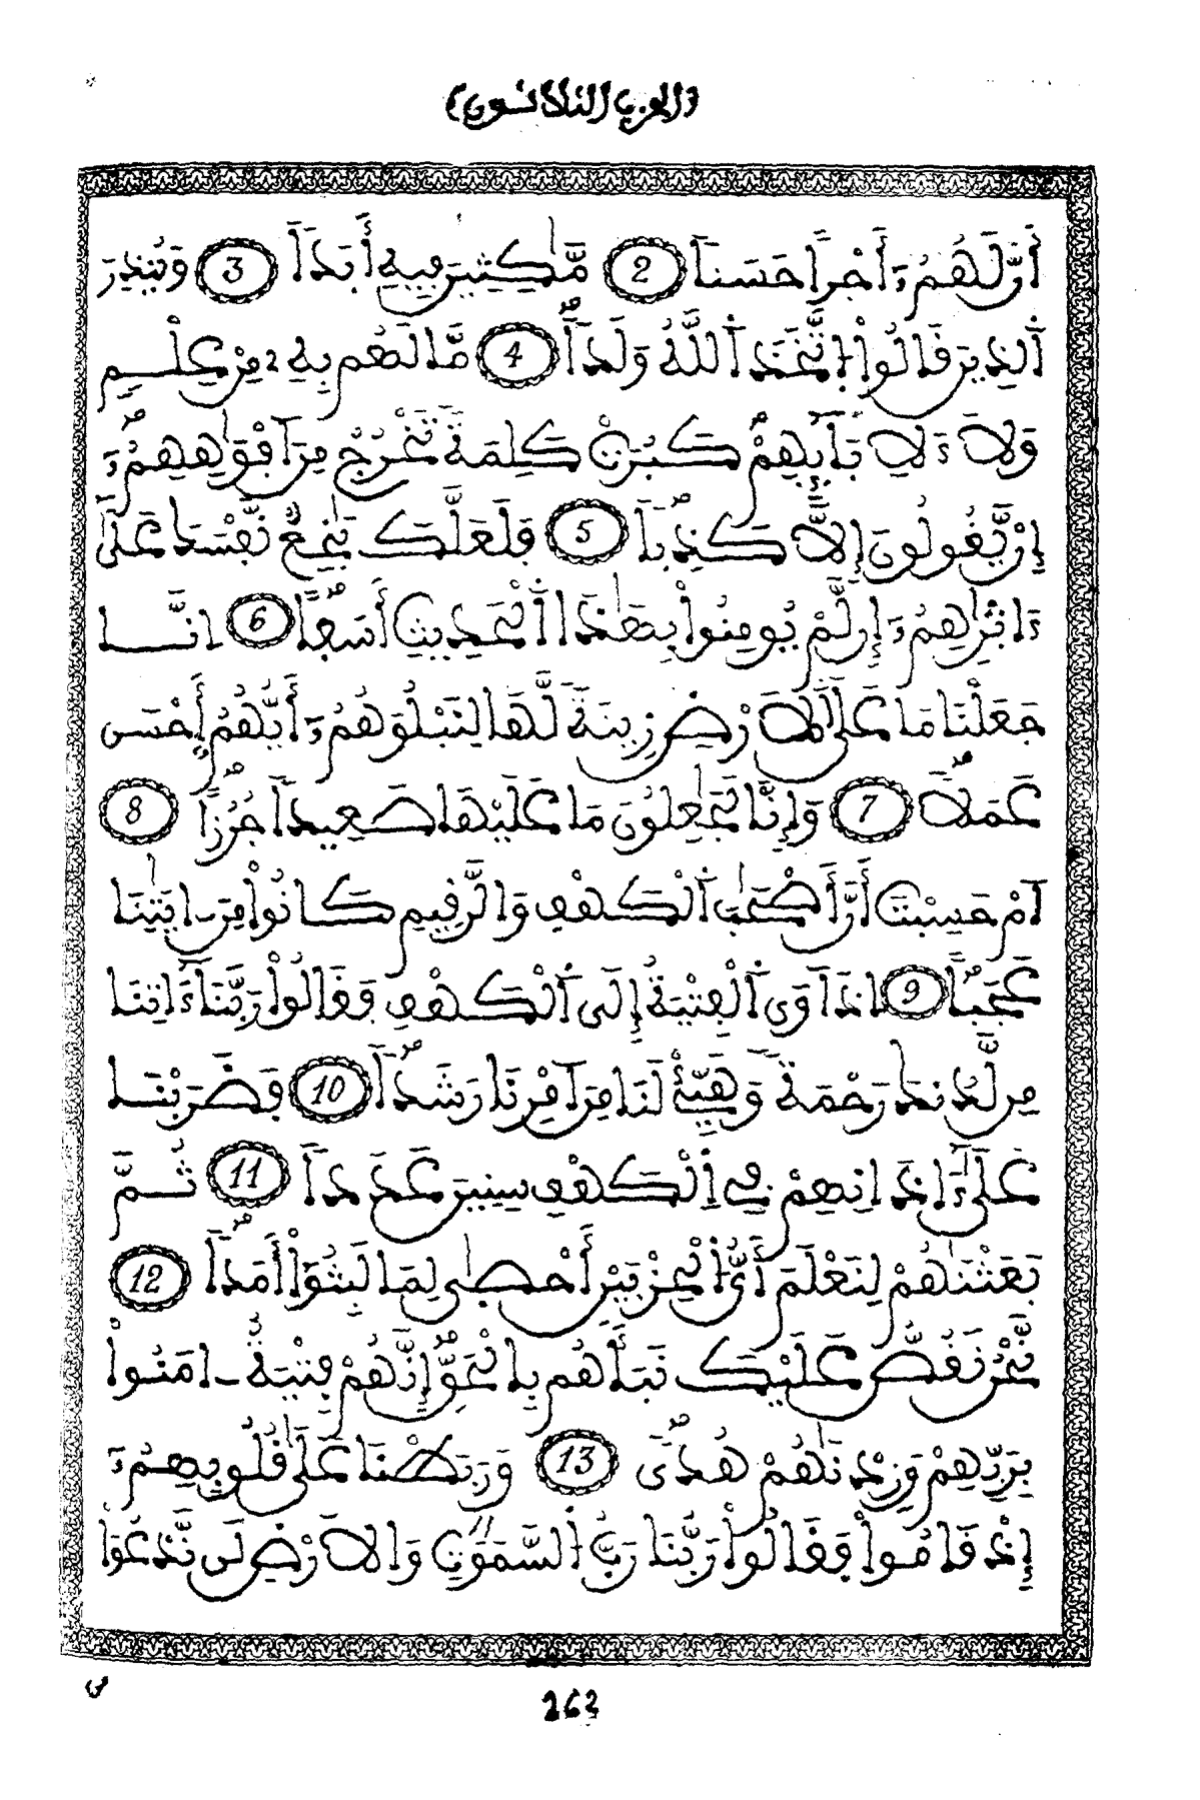 (الحزب الثلاثون)
أَنَّ لَهُمُۥٓ أَجْراً حَسَناً 2 مَّٰكِثِينَ فِيهِ أَبَداً 3 وَيُنذِرَ
ٱلذِينَ قَالُواْ اُتَّخَذَ ٱللَّهُ وَلَداٗ 4 مَّا لَهُم بِهِۦ مِنْ عِلْمٖ
وَلَا ءَلِابَآئِهِمْ كَبُرَتْ كَلِمَةٗ تَخْرُجُ مِنَ اَفْوَٰهِهِمُۥٓ
إِنْ يَّقُولُونَ إِلَّا كَذِباٗ 5 فَلَعَلَّكَ بَٰخِعٞ نَّفْسَكَ عَلَىٰٓ
ءَاثٰ۪رِهِمُۥٓ إِن لَّمْ يُومِنُواْ بِهَٰذَا اَ۬لْحَدِيثِ أَسَفاً 6 اِنَّا
جَعَلْنَا مَا عَلَى اَ۬لَارْضِ زِينَةٗ لَّهَا لِنَبْلُوَهُمُۥٓ أَيُّهُمُۥٓ أَحْسَنُ
عَمَلاٗ 7 وَإِنَّا لَجَٰعِلُونَ مَا عَلَيْهَا صَعِيداٗ جُرُزاً 8
اَمْ حَسِبْتَ أَنَّ أَصْحَٰبَ ٱلْكَهْفِ وَالرَّقِيمِ كَانُواْ مِنَ اٰيَٰتِنَا
عَجَباً 9 اِذَ اَوَى ٱلْفِتْيَةُ إِلَى ٱلْكَهْفِ فَقَالُواْ رَبَّنَآ ءَاتِنَا
مِن لَّدُنكَ رَحْمَةٗ وَهَيِّئْ لَنَا مِنَ اَمْرِنَا رَشَداٗ 10 فَضَرَبْنَا
عَلَىٰٓ ءَاذَانِهِمْ فِي اِ۬لْكَهْفِ سِنِينَ عَدَداٗ 11 ثُمَّ
بَعَثْنَٰهُمْ لِنَعْلَمَ أَيُّ اُ۬لْحِزْبَيْنِ أَحْصَىٰ لِمَا لَبِثُوٓاْ أَمَداٗ 12
نَّحْنُ نَقُصُّ عَلَيْكَ نَبَأَهُم بِالْحَقِّ إِنَّهُمْ فِتْيَةٌ اٰمَنُواْ
بِرَبِّهِمْ وَزِدْنَٰهُمْ هُدىٗ 13 وَرَبَطْنَا عَلَىٰ قُلُوبِهِمُۥٓ
إِذْ قَامُواْ فَقَالُواْ رَبُّنَا رَبُّ اُ۬لسَّمَٰوَٰتِ وَالَارْضِ لَن نَّدْعُوَاْ
263